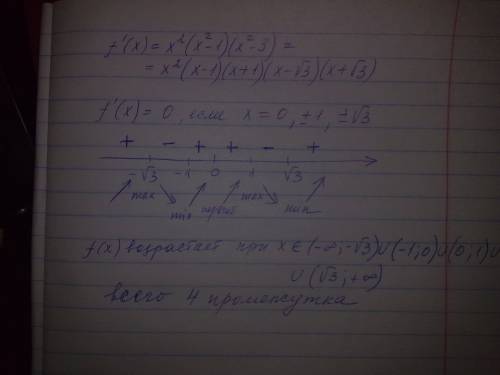 f'(x) = x²(x²-1)(x²-3) =
= x²(x-1)(x+1)(x-√3)(x+√3)
f'(x) = 0, если x = 0, ±1, ±√3
+ - + + - +
-√3 -1 0 1 √3
max min перегиб max мин
f(x) возрастает при x ∈ (-∞; -√3) ∪ (-1; 0) ∪ (0; 1) ∪
∪ (√3; +∞)
всего 4 промежутка